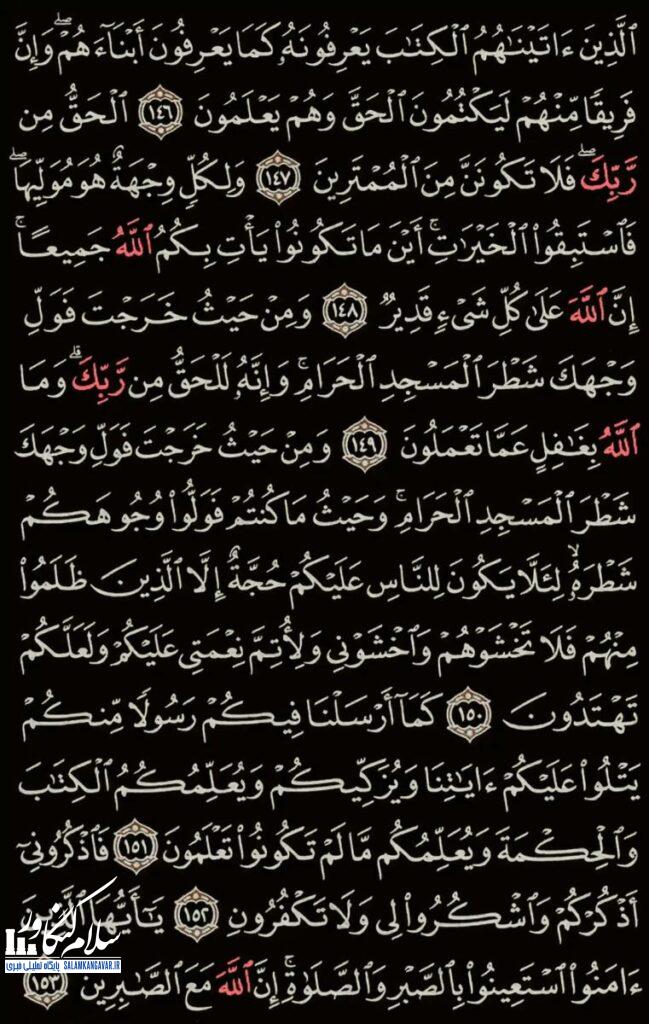 ٱلَّذِينَ ءَاتَيْنَـٰهُمُ ٱلْكِتَـٰبَ يَعْرِفُونَهُۥ كَمَا يَعْرِفُونَ أَبْنَآءَهُمْ ۖ وَإِنَّ
فَرِيقًا مِّنْهُمْ لَيَكْتُمُونَ ٱلْحَقَّ وَهُمْ يَعْلَمُونَ ١٤٦ ٱلْحَقُّ مِن
رَّبِّكَ ۖ فَلَا تَكُونَنَّ مِنَ ٱلْمُمْتَرِينَ ١٤٧ وَلِكُلٍّ وِجْهَةٌ هُوَ مُوَلِّيهَا ۖ
فَٱسْتَبِقُوا۟ ٱلْخَيْرَٰتِ ۚ أَيْنَ مَا تَكُونُوا۟ يَأْتِ بِكُمُ ٱللَّهُ جَمِيعًا ۚ
إِنَّ ٱللَّهَ عَلَىٰ كُلِّ شَىْءٍ قَدِيرٌ ١٤٨ وَمِنْ حَيْثُ خَرَجْتَ فَوَلِّ
وَجْهَكَ شَطْرَ ٱلْمَسْجِدِ ٱلْحَرَامِ ۖ وَإِنَّهُۥ لَلْحَقُّ مِن رَّبِّكَ ۗ وَمَا
ٱللَّهُ بِغَـٰفِلٍ عَمَّا تَعْمَلُونَ ١٤٩ وَمِنْ حَيْثُ خَرَجْتَ فَوَلِّ وَجْهَكَ
شَطْرَ ٱلْمَسْجِدِ ٱلْحَرَامِ ۚ وَحَيْثُ مَا كُنتُمْ فَوَلُّوا۟ وُجُوهَكُمْ
شَطْرَهُۥ لِئَلَّا يَكُونَ لِلنَّاسِ عَلَيْكُمْ حُجَّةٌ إِلَّا ٱلَّذِينَ ظَلَمُوا۟
مِنْهُمْ فَلَا تَخْشَوْهُمْ وَٱخْشَوْنِى وَلِأُتِمَّ نِعْمَتِى عَلَيْكُمْ وَلَعَلَّكُمْ
تَهْتَدُونَ ١٥٠ كَمَآ أَرْسَلْنَا فِيكُمْ رَسُولًا مِّنكُمْ
يَتْلُوا۟ عَلَيْكُمْ ءَايَـٰتِنَا وَيُزَكِّيكُمْ وَيُعَلِّمُكُمُ ٱلْكِتَـٰبَ
وَٱلْحِكْمَةَ وَيُعَلِّمُكُم مَّا لَمْ تَكُونُوا۟ تَعْلَمُونَ ١٥١ فَٱذْكُرُونِىٓ
أَذْكُرْكُمْ وَٱشْكُرُوا۟ لِى وَلَا تَكْفُرُونِ ١٥٢ يَـٰٓأَيُّهَا ٱلَّذِينَ
ءَامَنُوا۟ ٱسْتَعِينُوا۟ بِٱلصَّبْرِ وَٱلصَّلَوٰةِ ۚ إِنَّ ٱللَّهَ مَعَ ٱلصَّـٰبِرِينَ ١٥٣
سلام کنگاور
پایگاه تحلیلی خبری SALAMKANGAVAR.IR